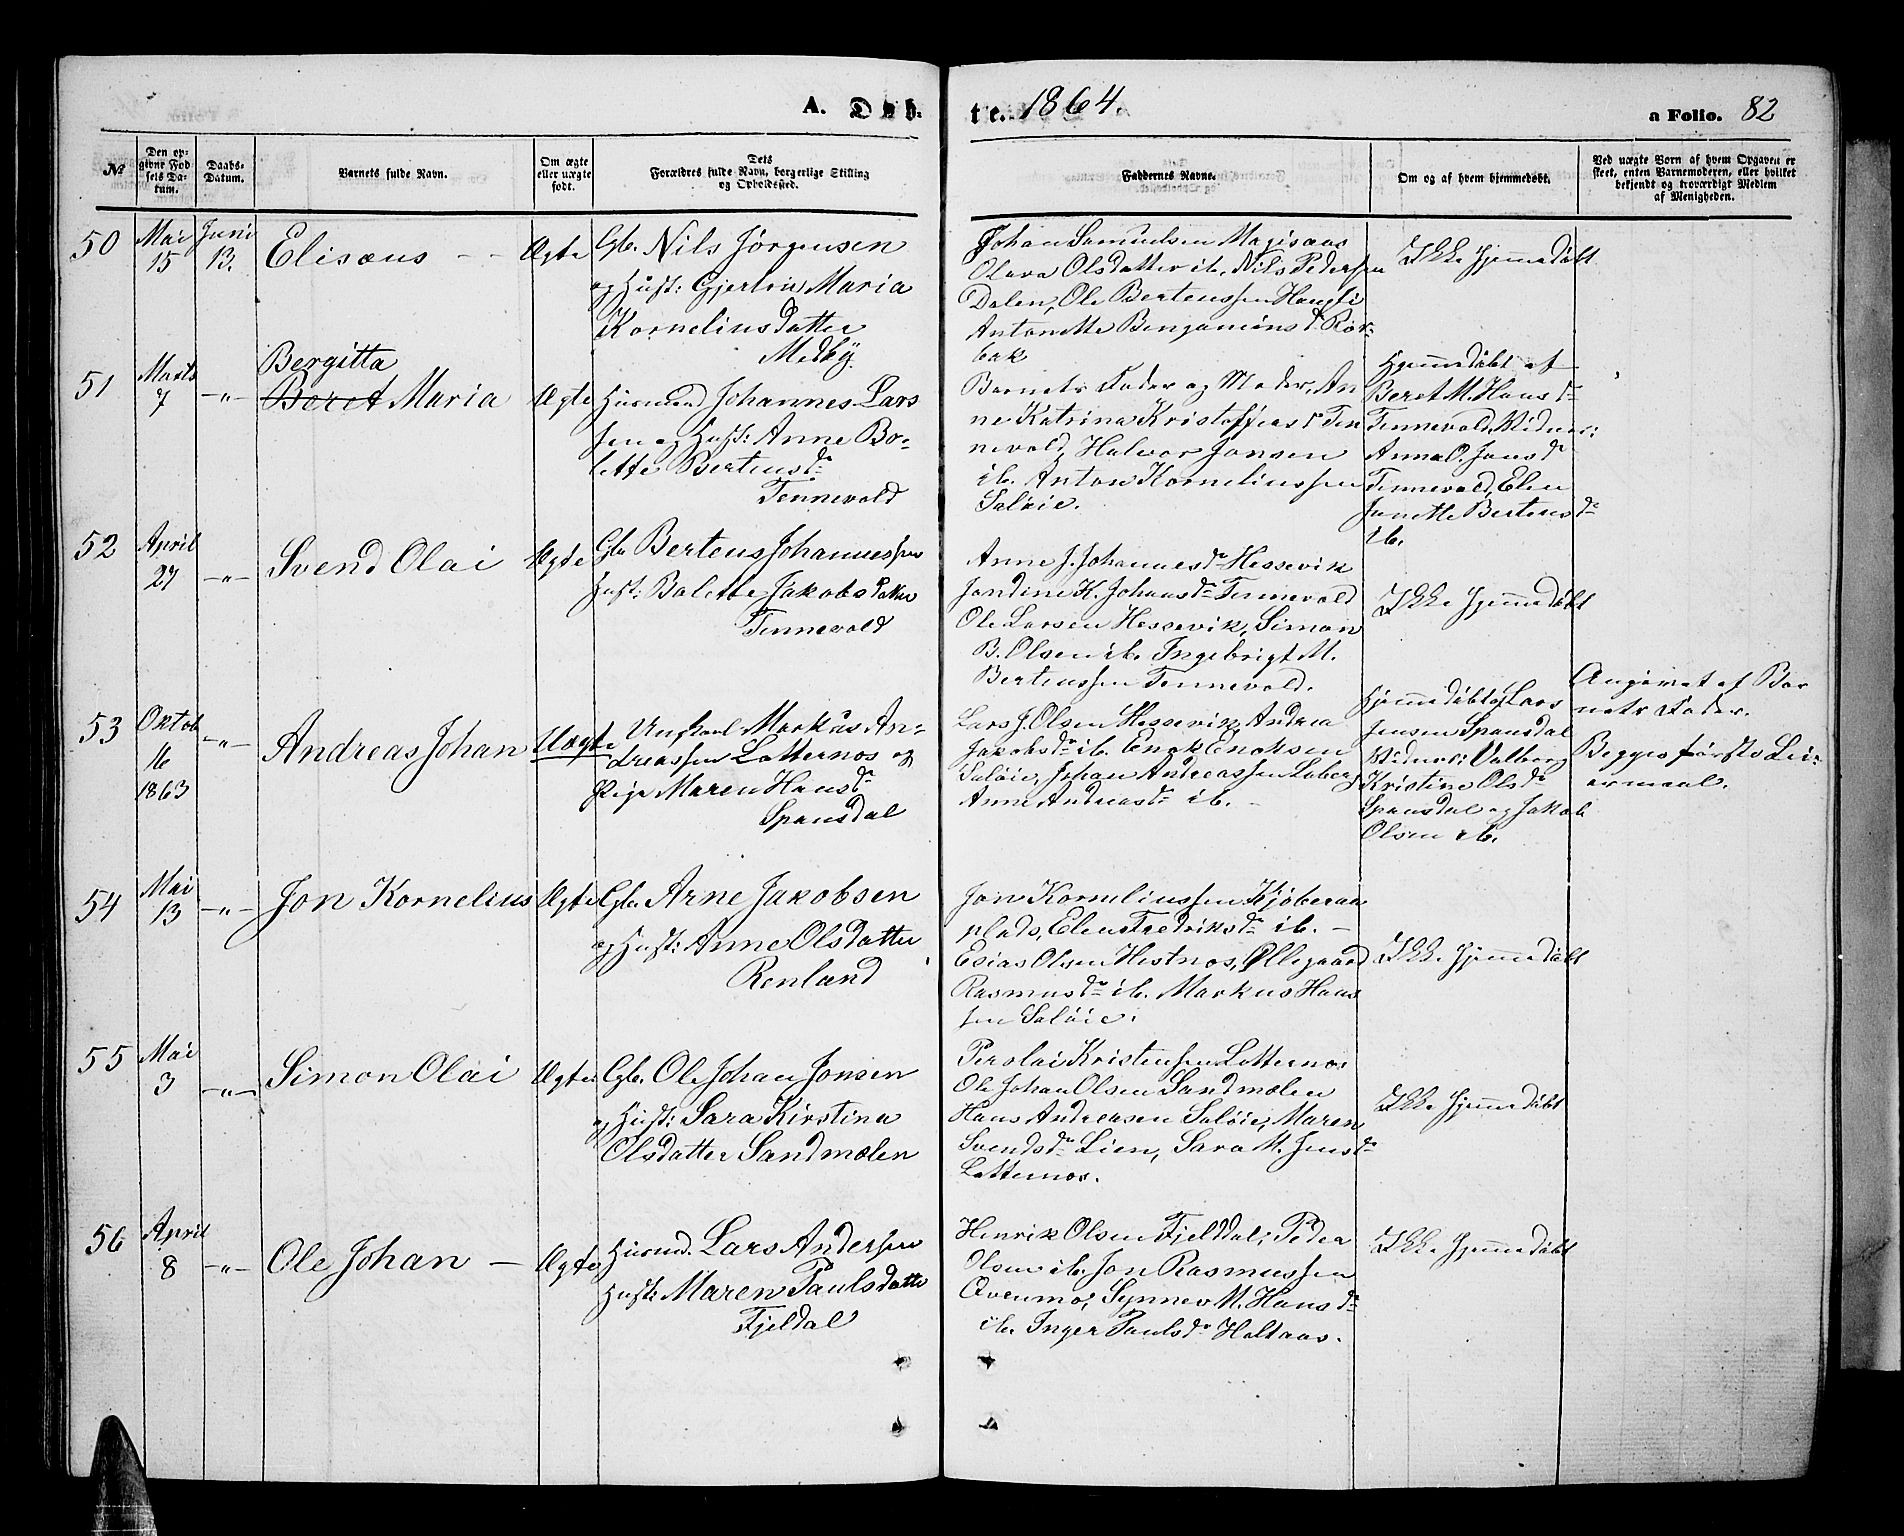 A. Døb-
te. 1864.
a Folio. 82
№
Den op-
givne Fød-
sels Da-
tum.
Daabs-
Datum.
Barnets fulde Navn.
Om ægte
eller uægte
født.
Dets
Forældres fulde Navn, borgerlige Stilling
og Opholdssted.
Faddernes Navne.
Om og af hvem hjemmedøbt.
Ved uægte Børn af hvem Opgaven er
skeet, enten Barnemoderen, eller hvilket
bekjendt og troværdigt Medlem
af Menigheden.
50
Mai
15
Juni
13.
Elisæus - -
Ægte
Gb. Nils Jørgensen
og Hust: Gjertrin Maria
Korneliusdatter
Medby.
Johan Samuelsen Magisaas
Olava Olsdatter ib. Nils Pedersen
Dalen, Ole Bertenssen
Antonette Benjamins dr Rør-
bak
Ikke hjemmedøbt
51
Marts
7
-"-
Bergitta
Beret Maria
Ægte
Husmd Johannes Lars
sen og Hust: Anne Bo-
lette Bertensdr
Tennevold
Barnets Fader og Moder, An
ne Katrina Kristoffers dr Ten
nevold, Halvor Jonsen
ib. Anton Korneliussen
Saløie.
Hjemmedøbt af
Beret M. Hans dr
Tennevold, Vidner:
Anna O. Jons dr
Tennevold, Elen
Janette Bertens dr
ib.
52
April
27
-"-
Svend Olai
Ægte
Gb. Bertens Johannessen
Hust: Bolette Jakobsdatter
Tennevold
Anne J. Johannes dr Hessevik
Jondine K. Johans dr Tennevold
Ole Larsen Hessevik, Simon
B. Olsen ib. Ingebrigt M.
Bertenssen Tennevold.
Ikke hjemmedøbt
53
Oktob
16
1863
-"-
Andreas Johan
Uægte
Ungkarl Markus An-
dreassen Lotternos og
Pige Maren Hansdr
Spansdal
Lars J. Olsen Hessevik, Andrea
Jakobsdr ib. Enok Enoksen
Saløie, Johan Andreassen Laberg
Anne Andreas dr ib. -
Hjemmedøbt af Lars
Jensen Spansdal
Vidner: Valborg
Kristine Ols dr
Spansdal og Jakob
Olsen ib.
Angivet af Bar
nets Fader.
Begges første Lei-
ermaal.
54
Mai
13
-"-
Jon Kornelius
Ægte
Gb. Arne Jakobsen
og Hust: Anne Olsdatter
Renland
Jon Korneliussen Kjøberan
plads, Elen Fredriks dr ib. -
Esias Olsen Hestnes, Ollegaard
Rasmus dr ib. Markus Hans
sen Saløie.
Ikke hjemmedøbt
55
Mai
3
-"-
Simon Olai
Ægte
Gb. Ole Johan Jonsen
og Hust: Sara Kirstina
Olsdatter Sandmælen
Perolai Kristensen Lotternos
Ole Johan Olsen Sandmælen
Hans Andreasen Saløie, Maren
Svends dr Lien, Sara M. Jens dr
Lotternos.
Ikke hjemmedøbt
56
April
8
-"-
Ole Johan -
Ægte
Husmd. Lars Andersen
Hust: Maren Paulsdatter
Fjeldal
Henrik Olsen Fjelddal, Peder
Olsen ib. Jon Rasmussen
Ovenmo, Synnev M. Hans dr
ib. Inger Pauls dr Holtaas.
Ikke hjemmedøbt